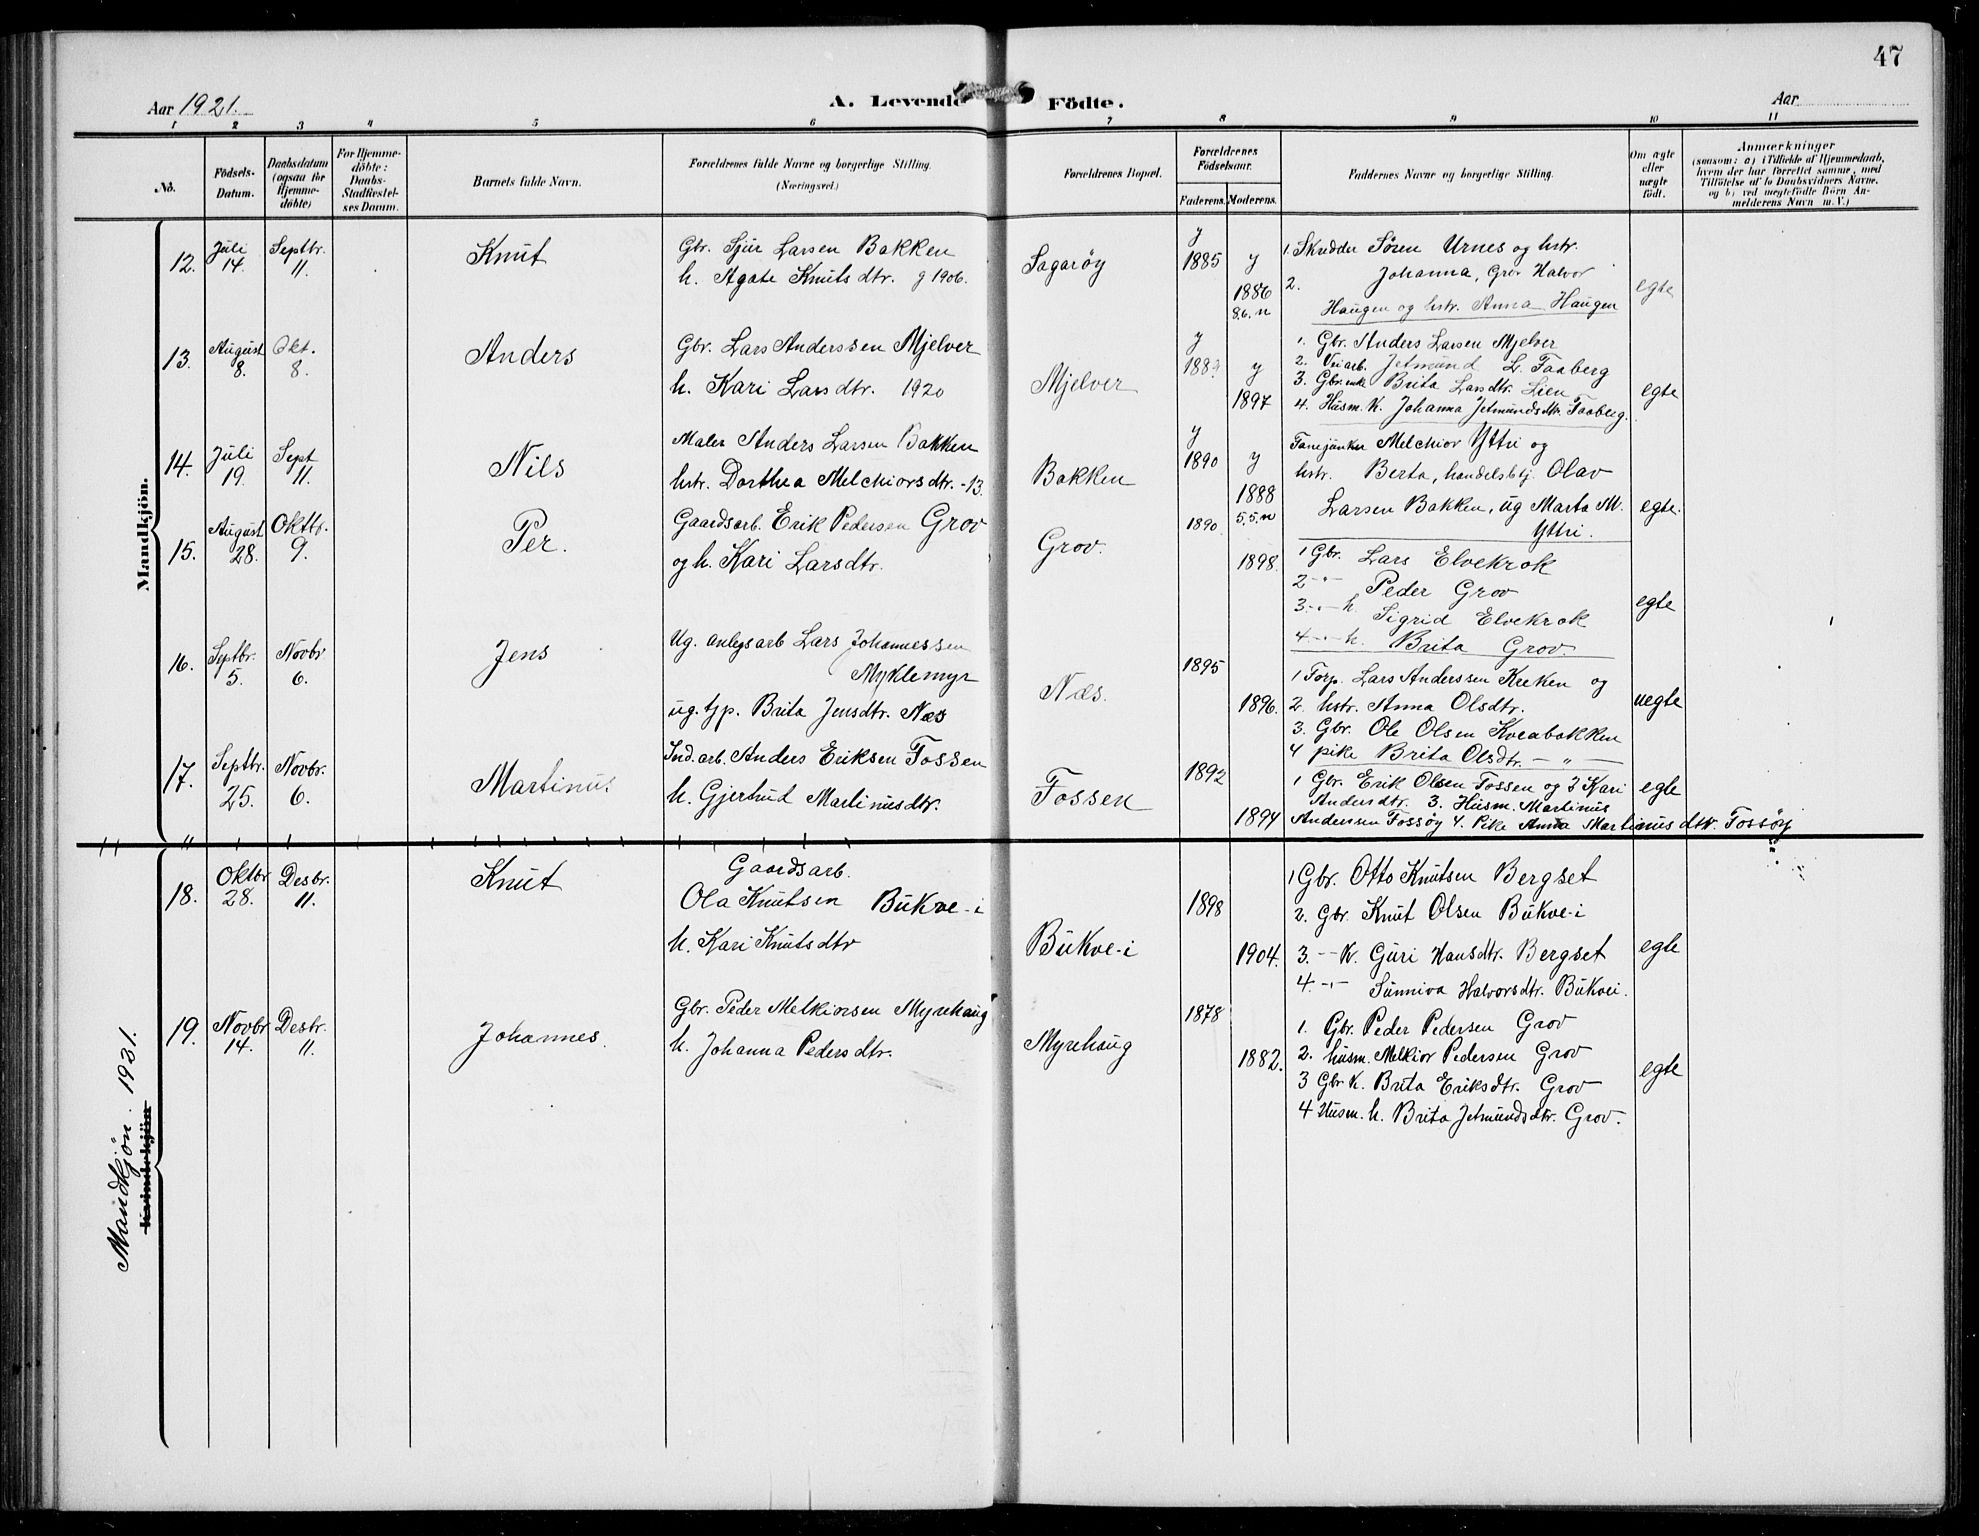 47
Aar 1921.
A. Levende Födte.
Aar
1 2 3 4 5 6 7 8 9 10 11
No.
Födsels-Datum.
Daabsdatum (ogsaa for Hjemmedöbte)
For Hjemmedöbte: Daabs-Stadfæstelses Datum.
Barnets fulde Navn.
Forældrenes fulde Navne og borgerlige Stilling.
(Næringsvei.)
Forældrenes Bopæl.
Forældrenes Födselsaar.
Faderens. Moderens.
Faddernes Navne og borgerlige Stilling.
Om ægte eller uægte födt.
Anmærkninger
(saasom: a) i Tilfælde af Hjemmedaab,
hvem der har forrettet samme, med
Tilföielse af to Daabsvidners Navne,
og b) ved uægtefödte Börn An-
melderens Navn m. V.)
Mandkjön.
12. Juli 14. Septbr. 11. Knut
Gbr. Sjur Larsen Bakken
h. Agate Knuts dtr. g 1906.
Sagarøy
y 1885
y 1886
8.6. n
1. Skrædder Søren Urnes og hstr.
Johanna, Grdr Halvor
2.
Haugen og hstr. Anna Haugen
egte
13. August 8. Okt. 8. Anders
Gbr. Lars Anderssen Mjelver
h. Kari Lars dtr. 1920
Mjelver
y 188
y 1897
1. Gbr. Anders Larsen Mjelver
2. Veiarb. Jetmund L. Faaberg
3. Gbr. enk Brita Larsdtr. Lien
4. Husm. K. Johanna Jetmundsdtr. Faaberg.
egte
14. Juli 19. Sept 11. Nils
Maler Anders Larsen Bakken
hstr. Dorthea Melchiorsdtr. -13.
Bakken
y 1890
y 1888
5.5. n
Fanejunker Melchior Yttri og
hstr. Berta, handelsbtj. Olav
Larsen Bakken, ug Marta M.
Yttri.
egte.
15. August 28. Oktbr. 9. Per.
Gaardsarb. Erik Pedersen Grov
og h. Kari Larsdtr.
Grov.
1890
1898.
1 Gbr. Lars Elvekrok
2 -"- Peder Grov
3 -"- h. Sigrid Elvekrok
4 -"- h. Brita Grov.
egte
16. Septbr. 5. Novbr 6. Jens
Ug. anlegsarb Lars Johannessen
Myklemyr
ug. tjp. Brita Jensdtr. Næs
Næs.
1895
1896.
1 Forp. Lars Anderssen Kreken og
2. hstr. Anna Olsdtr.
3. Gbr. Ole Olsen Kveabakken
4 pike Brita Olsdtr. — " —
uegte
17. Septbr. 25. Novbr. 6. Martinus
Ind. arb. Anders Eriksen Fossen
h. Gjertrud Martinusdtr.
Fossen
1892
1894
1 Gbr. Erik Olsen Fossen og 2 Kari
Andersdtr. 3. Husm. Martinus
Andersen Fossøy 4. Pike Anna Martinus dtr. Fossøy
egte
Mandkjøn. 1921.
Kvindekjön
18. Oktbr 28. Desbr. 11. Knut
Gaardsarb.
Ola Knutsen Bukve-i
h. Kari Knuts dtr
Bukve-i
1898
1904.
1 Gbr. Otto Knutsen Bergset
2. Gbr Knut Olsen Bukve-i
3. -"- K. Guri Hansdtr. Bergset
4. -"- Sunniva Halvorsdtr. Bukvei.
egte
19. Novbr 14. Desbr. 11. Johannes.
Gbr. Peder Melkiorsen Myrehaug
h. Johanna Peders dtr.
Myrehaug
1878
1882.
1. Gbr. Peder Pedersen Grov
2. husm. Melkior Pedersen Grov
3 Gbr K. Brita Eriksdtr. Grov
4 Husm. h. Brita Jetmundsdtr. Grov.
egte